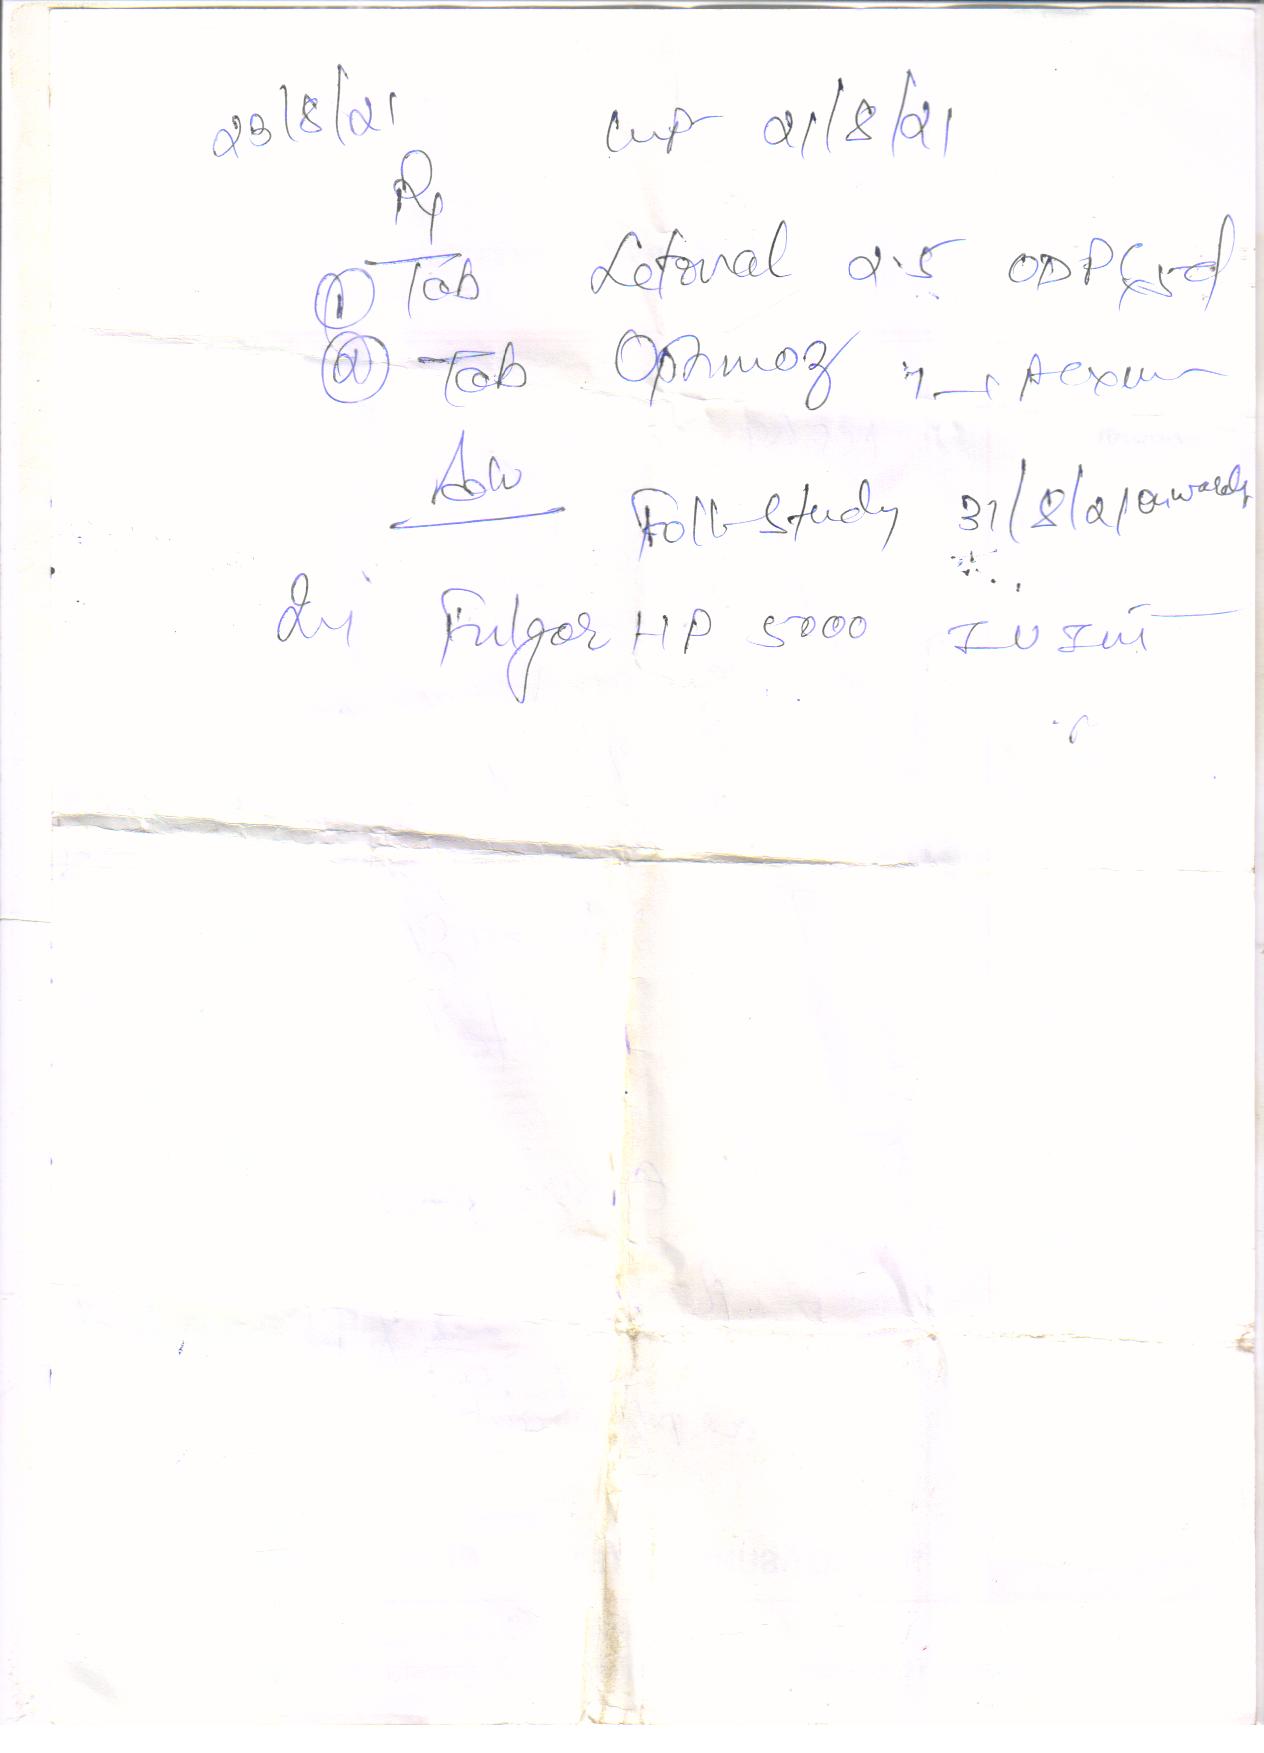 23/8/21 LMP 21/8/21
Rx
① Tab Letoval 2.5 OD P
② Tab Optimoz 1-1
Adv Foll-Study 31/8/21 onwards
Inj Fulgor HP 5000